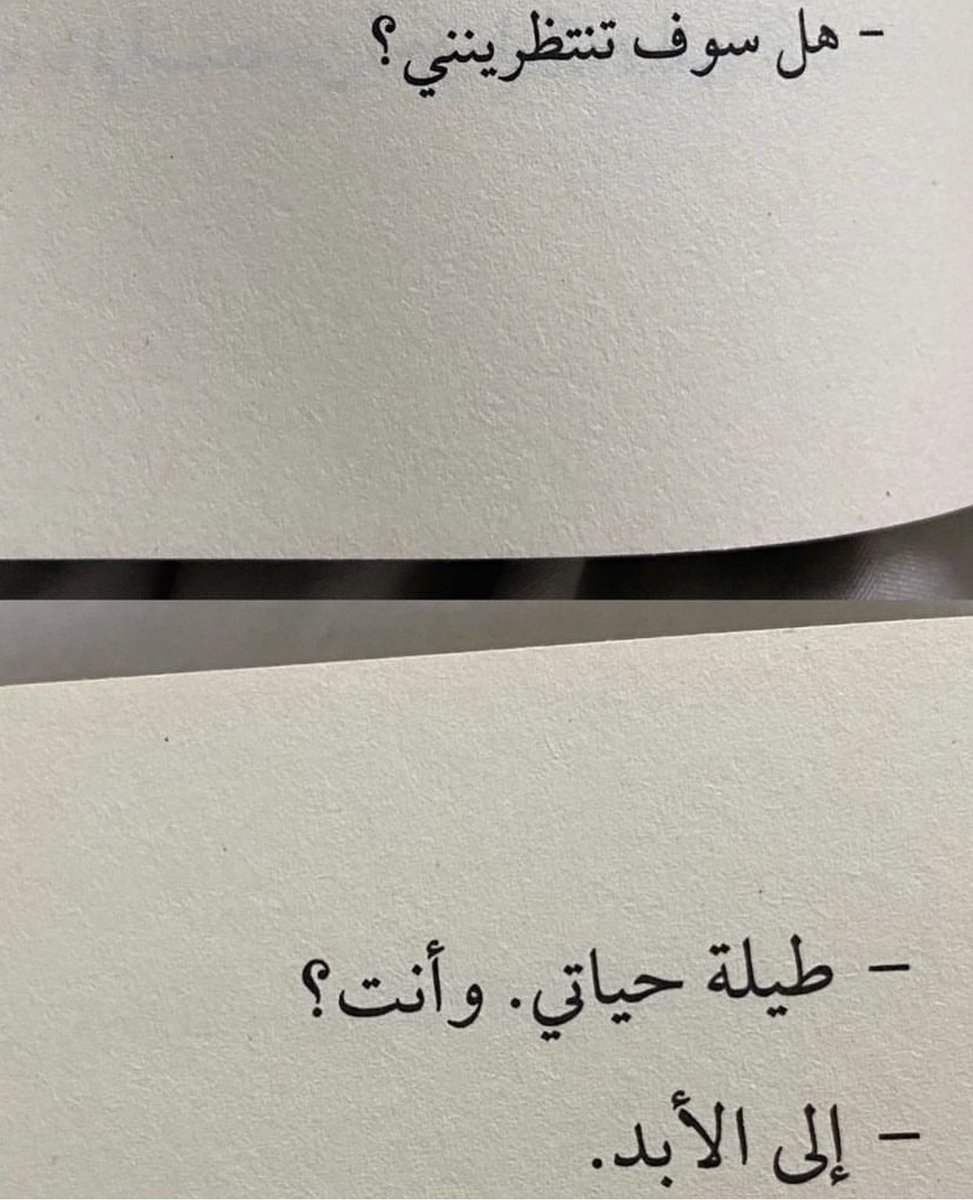 - هل سوف تنتظرينني؟
- طيلة حياتي. وأنت؟
- إلى الأبد.